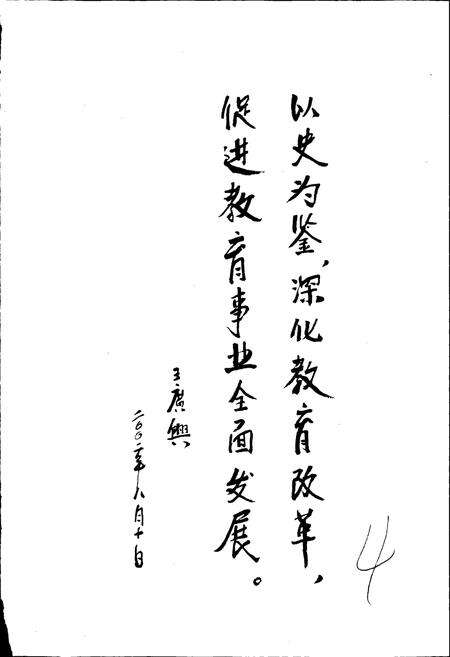 以史为鉴,深化教育改革,
促进教育事业全面发展。
王廣興
二〇〇二年八月十日
4